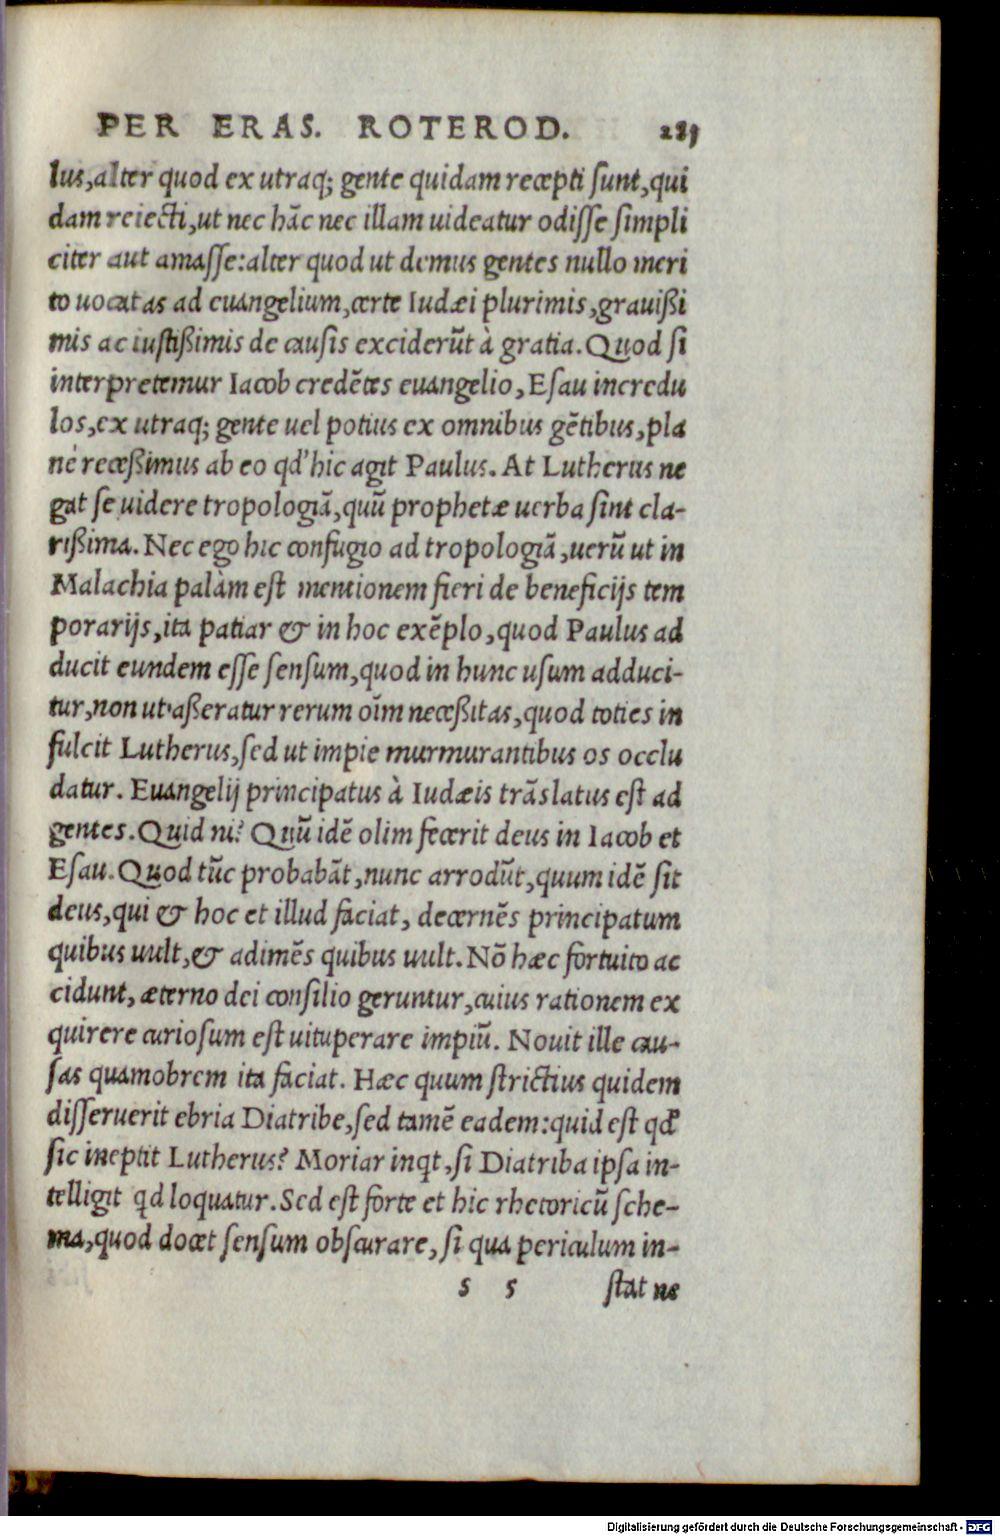 PER ERAS. ROTEROD. 285
lus,alter quod ex utraq; gente quidam recepti sunt,qui
dam reiecti,ut nec hāc nec illam uideatur odisse simpli
citer aut amasse:alter quod ut demus gentes nullo meri
to uocatas ad euangelium,certe Iudæi plurimis,grauißi
mis ac iustißimis de causis exciderūt à gratia.Quod si
interpretemur Iacob credētes euangelio,Esau incredu
los,ex utraq; gente uel potius ex omnibus gētibus,pla
nè receßimus ab eo qd' hic agit Paulus.At Lutherus ne
gat se uidere tropologiā,quū prophetæ uerba sint cla-
rißima.Nec ego hic confugio ad tropologiā,uerū ut in
Malachia palàm est mentionem fieri de beneficijs tem
porarijs,ita patiar & in hoc exēplo,quod Paulus ad
ducit eundem esse sensum,quod in hunc usum adduci-
tur,non ut aßeratur rerum oīm neceßitas,quod toties in
fulcit Lutherus,sed ut impie murmurantibus os occlu
datur. Euangelij principatus à Iudæis trāslatus est ad
gentes.Quid ni? Quū idē olim fecerit deus in Iacob et
Esau.Quod tūc probabāt,nunc arrodūt,quum idē sit
deus,qui & hoc et illud faciat, decernēs principatum
quibus uult,& adimēs quibus uult.Nō hæc fortuito ac
cidunt, æterno dei consilio geruntur,cuius rationem ex
quirere curiosum est uituperare impiū. Nouit ille cau-
sas quamobrem ita faciat. Hæc quum strictius quidem
disseruerit ebria Diatribe,sed tamē eadem:quid est qd'
sic ineptit Lutherus? Moriar inqt,si Diatriba ipsa in-
telligit qd loquatur.Sed est forte et hic rhetoricū sche-
ma,quod docet sensum obscurare, si qua periculum in-
s 5 stat ne
Digitalisierung gefördert durch die Deutsche Forschungsgemeinschaft - DFG